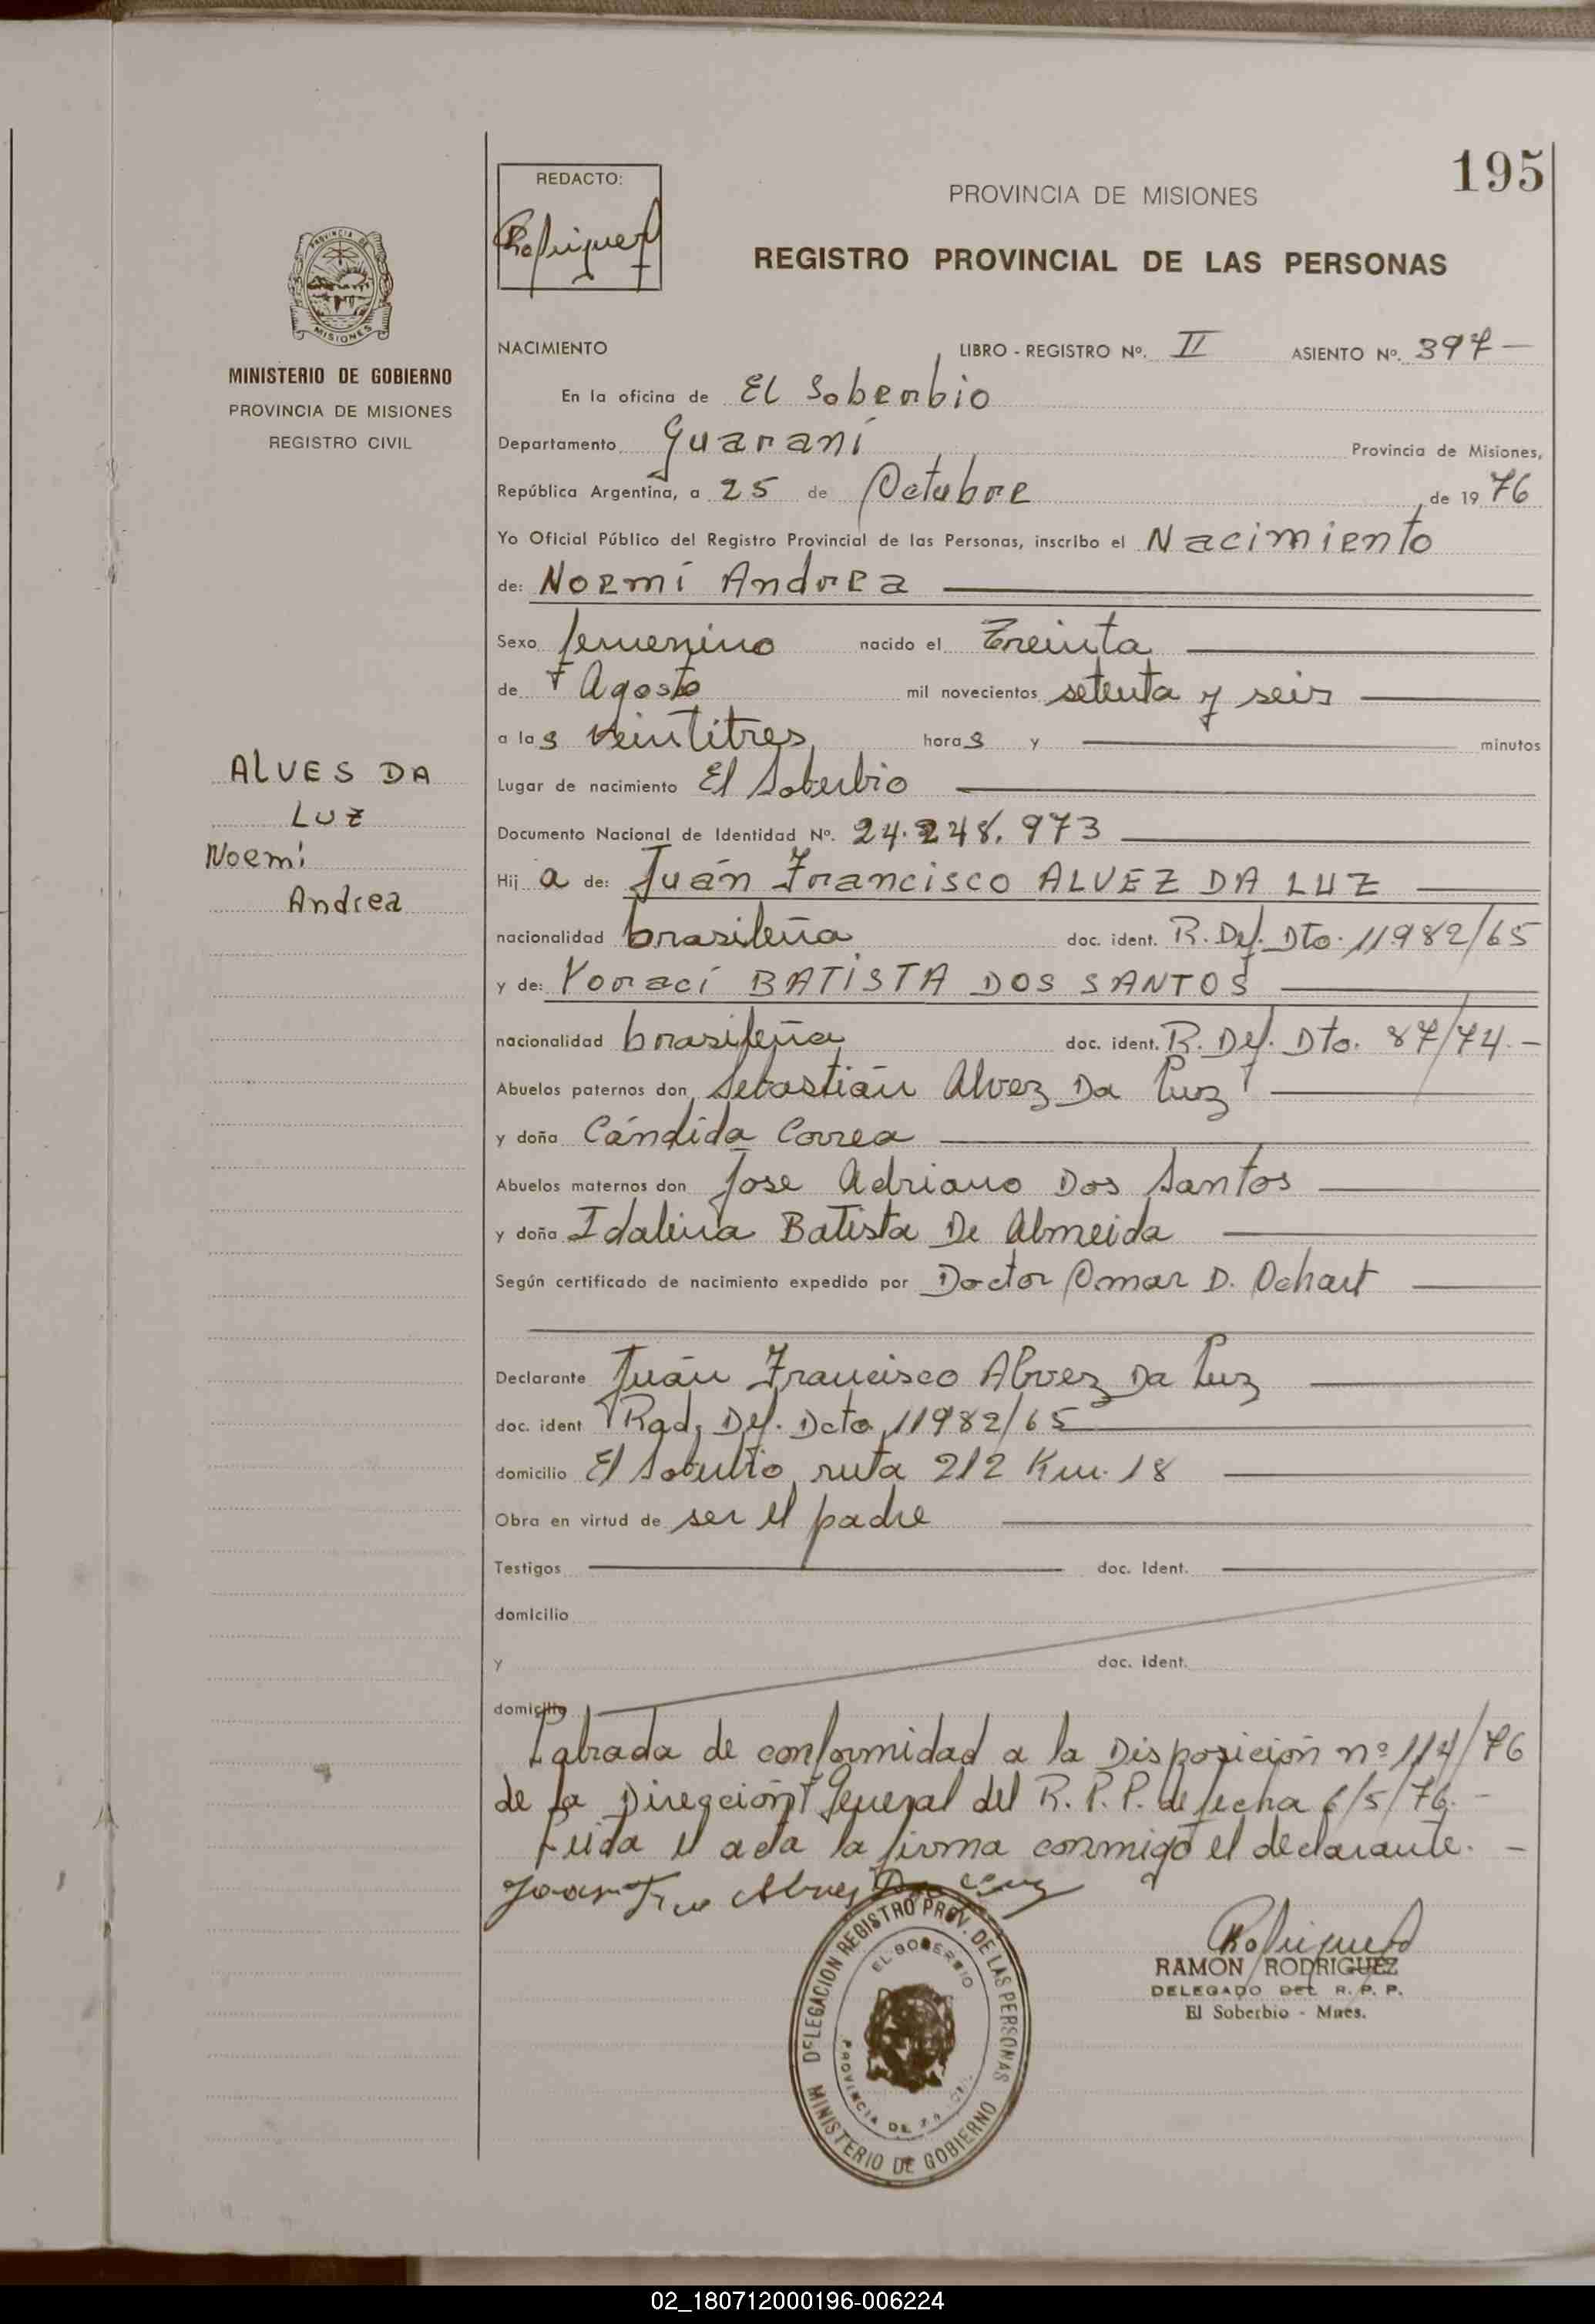 195
REDACTO:
Rodriguez
PROVINCIA DE MISIONES
REGISTRO PROVINCIAL DE LAS PERSONAS
PROVINCIA DE
MISIONES
MINISTERIO DE GOBIERNO
PROVINCIA DE MISIONES
REGISTRO CIVIL
ALVES DA
LUZ
Noemi
Andrea
NACIMIENTO LIBRO - REGISTRO Nº. II ASIENTO Nº. 397
En la oficina de El Soberbio
Departamento Guaraní Provincia de Misiones,
República Argentina, a 25 de Octubre de 1976
Yo Oficial Público del Registro Provincial de las Personas, inscribo el Nacimiento
de: Noemí Andrea
Sexo femenino nacido el Treinta
de Agosto mil novecientos setenta y seis
a las veintitres horas y minutos
Lugar de nacimiento El Soberbio
Documento Nacional de Identidad Nº. 24.248.973
Hija de: Juán Francisco ALVEZ DA LUZ
nacionalidad brasileña doc. ident. R. Def. Dto. 11982/65
y de: Yorací BATISTA DOS SANTOS
nacionalidad brasileña doc. ident. R. Def. Dto. 87/74.-
Abuelos paternos don Sebastián Alvez Da Luz
y doña Cándida Correa
Abuelos maternos don Jose Adriano Dos Santos
y doña Idalina Batista De Almeida
Según certificado de nacimiento expedido por Doctor Omar D. Ochart
Declarante Juán Francisco Alvez Da Luz
doc. ident Rad. Def. Dcto 11982/65
domicilio El Soberbio, ruta 212 Km. 18
Obra en virtud de ser el padre
Testigos doc. ident.
domicilio
y doc. ident.
domicilio
Labrada de conformidad a la Disposición nº 114/76
de la Dirección General del R. P. P. de fecha 6/5/76.-
Leida el acta la firma conmigo el declarante.-
Alvez Da Luz
Rodriguez
RAMON RODRIGUEZ
DELEGADO DEL R. P. P.
El Soberbio - Mnes.
DELEGACION REGISTRO PROV. DE LAS PERSONAS
EL SOBERBIO
PROVINCIA DE
MINISTERIO DE GOBIERNO
02_180712000196-006224